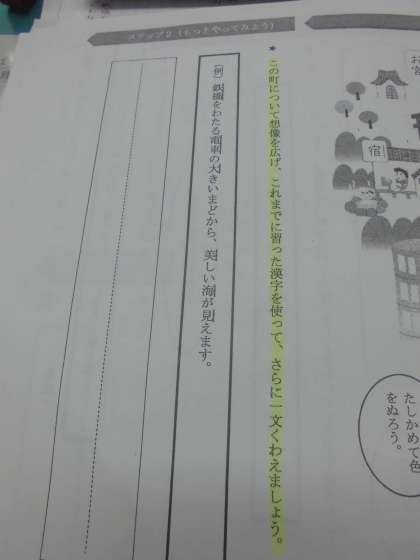 ステップ2(もっとやってみよう)
お宮
宿
たしかめて色
をぬろう。
★ この町について想像を広げ、これまでに習った漢字を使って、さらに一文くわえましょう。
(例) 鉄橋をわたる電車の大きいまどから、美しい海が見えます。